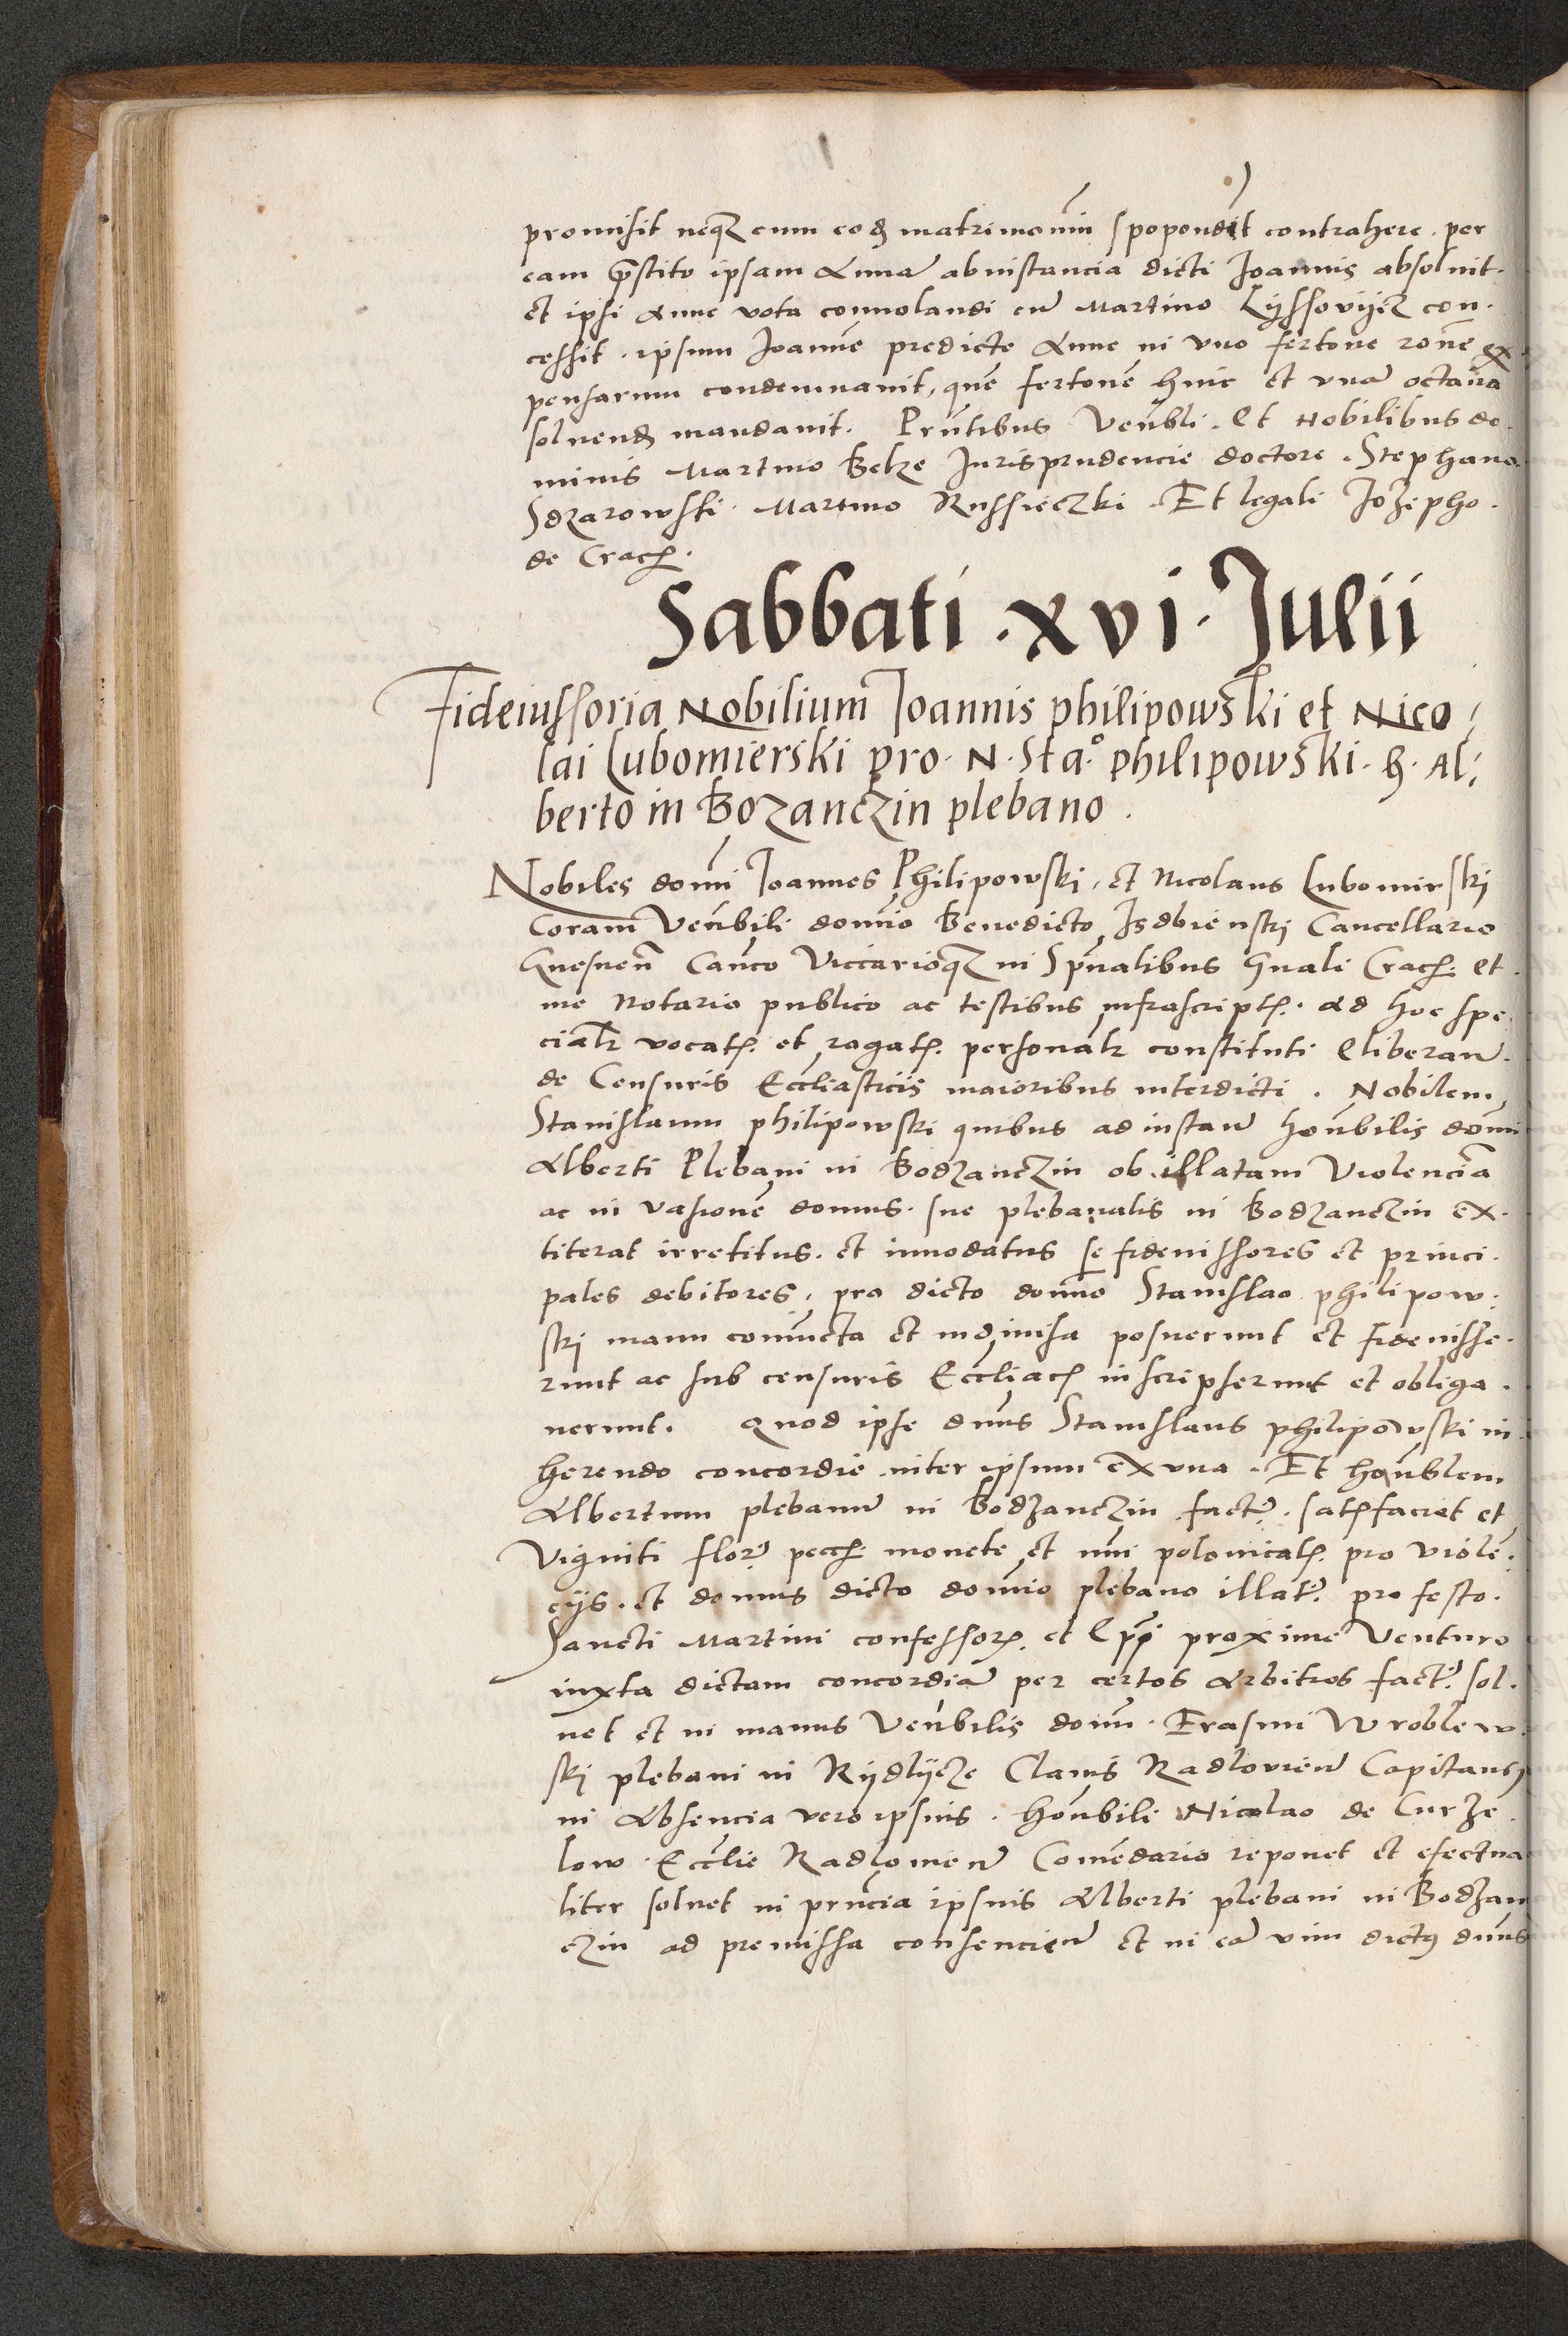 promisit neqȝ cum eodē matrimoniū spopondit contrahere. per
eam p̄stito ipsam Annā ab instancia dicti Joannis absoluit.
et ipsi Anne vota conuolandi cū Martino Lyssovijcz con.
cessit. ipsum Joannē predicte Anne in vno fertone rōne ex.
pensarum condemnauit, quē fertonē hinc et vnā octauā
soluendū mandauit. Pn̄tibus Ven̄bli. et Nobilibus do.
minis Martino Belze Jurisprudencie doctore. Stephano
Sdzarowski. Martino Russieczki. Et legali Jozepho.
de Crac̄.
Sabbati .xvi. Julii
Fideiussoria Nobilium Joannis philipowski et Nico
lai Lubomierski pro. N. Sta.º philipowski. h. Al:
berto in Bozanczin plebano.
Nobiles domi Joannes Philipowski, et Nicolaus Lubomirskj
Coram Ven̄bili domino Benedicto Isdbienskj Cancellario
Gnesnen̄ Can̄co Viccarioqȝ in Sp̄ualibus Gn̄ali Crac̄. et.
me Notario publico ac testibus infrascript. ad hoc spe.
cialr̄ vocat. et rogat. personalr̄ constituti eliberan̄.
de Censuris Eccliasticis maioribus interdicti. Nobilem
Stanislaum philipowski quibus ad instan̄ hon̄bilis domi
Alberti Plebani in Bodzanczin ob illatam Violenciā
ac in vasionē domus. sue plebanalis in Bodzanczin ex.
titerat irretitus. et innodatus se fideiussores et princi.
pales debitores, pro dicto domīo Stanislao philipow:
skj manu coniuncta et indiuisa posuerunt et fideiusse.
runt ac sub censuris Eccliac̄ inscripserunt et obliga.
uerunt. Quod ipse dn̄us Stanislaus philipowski in.
herendo concordie inter ipsum ex vna. Et hon̄blem
Albertum plebanū in Bodzanczin factę. satisfaciet et
Viginti florę pecc. monete et nūi polonicat. pro violē.
cijs. et domus dicto domīo plebano illatę. pro festo.
Sancti Martini confessorȝ. et Ep̄pi proxime Venturo
iuxta dictam concordiā per certos Arbitros factę. sol.
uet et in manus Ven̄bilis domī. Erasmi Wroblew.
skj plebani in Rydlijcze Clauis Radlovien̄ Capitanej
in Absencia vero ipsius. hon̄bili Nicolao de Curze.
low. Ecclie Radlouien̄ Comēdario reponet et efectua
liter soluet in prn̄cia ipsius Alberti plebani in Bodzan
czin ad premissa consencien̄ et in eā vim dictus dn̄us